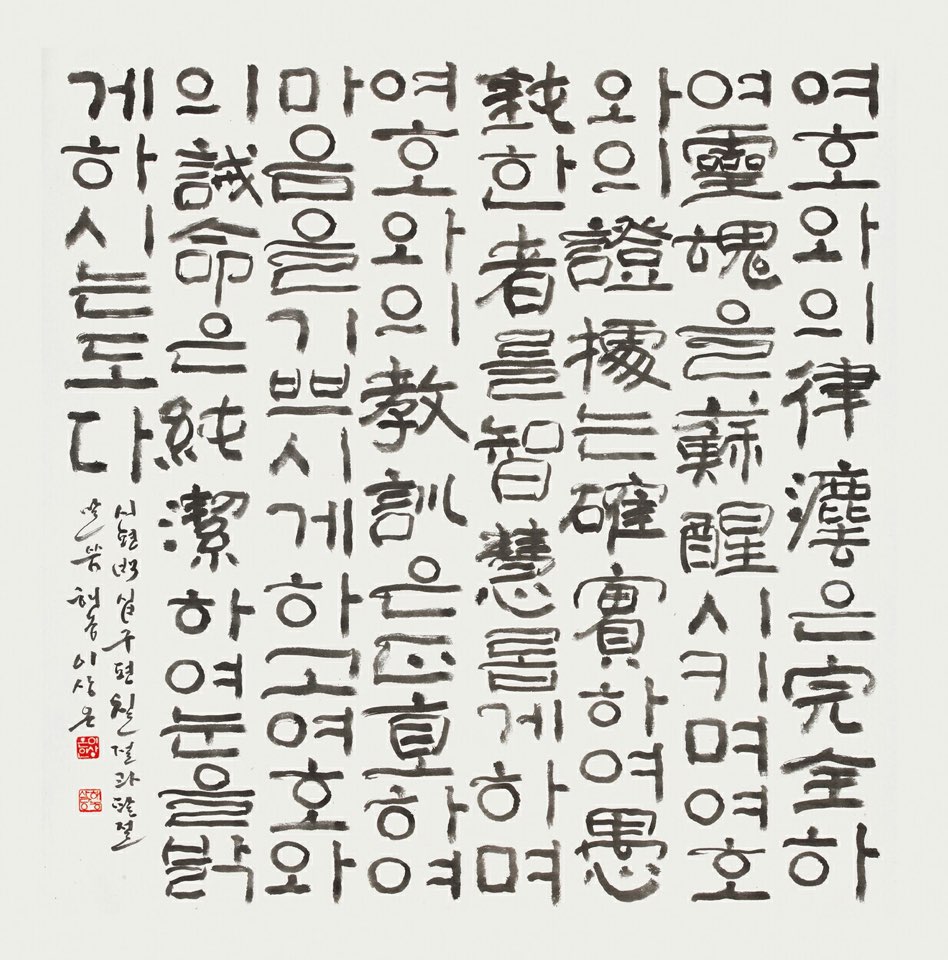 여호와의律灋은完全하
여靈魂을蘇醒시키며여호
와의證據는確實하여愚
鈍한者를智慧롭게하며
여호와의教訓은正直하여
마음을기쁘시게하고여호와
의誡命은純潔하여눈을밝
게하시는도다
시편 십구편 칠절과 팔절
이상은